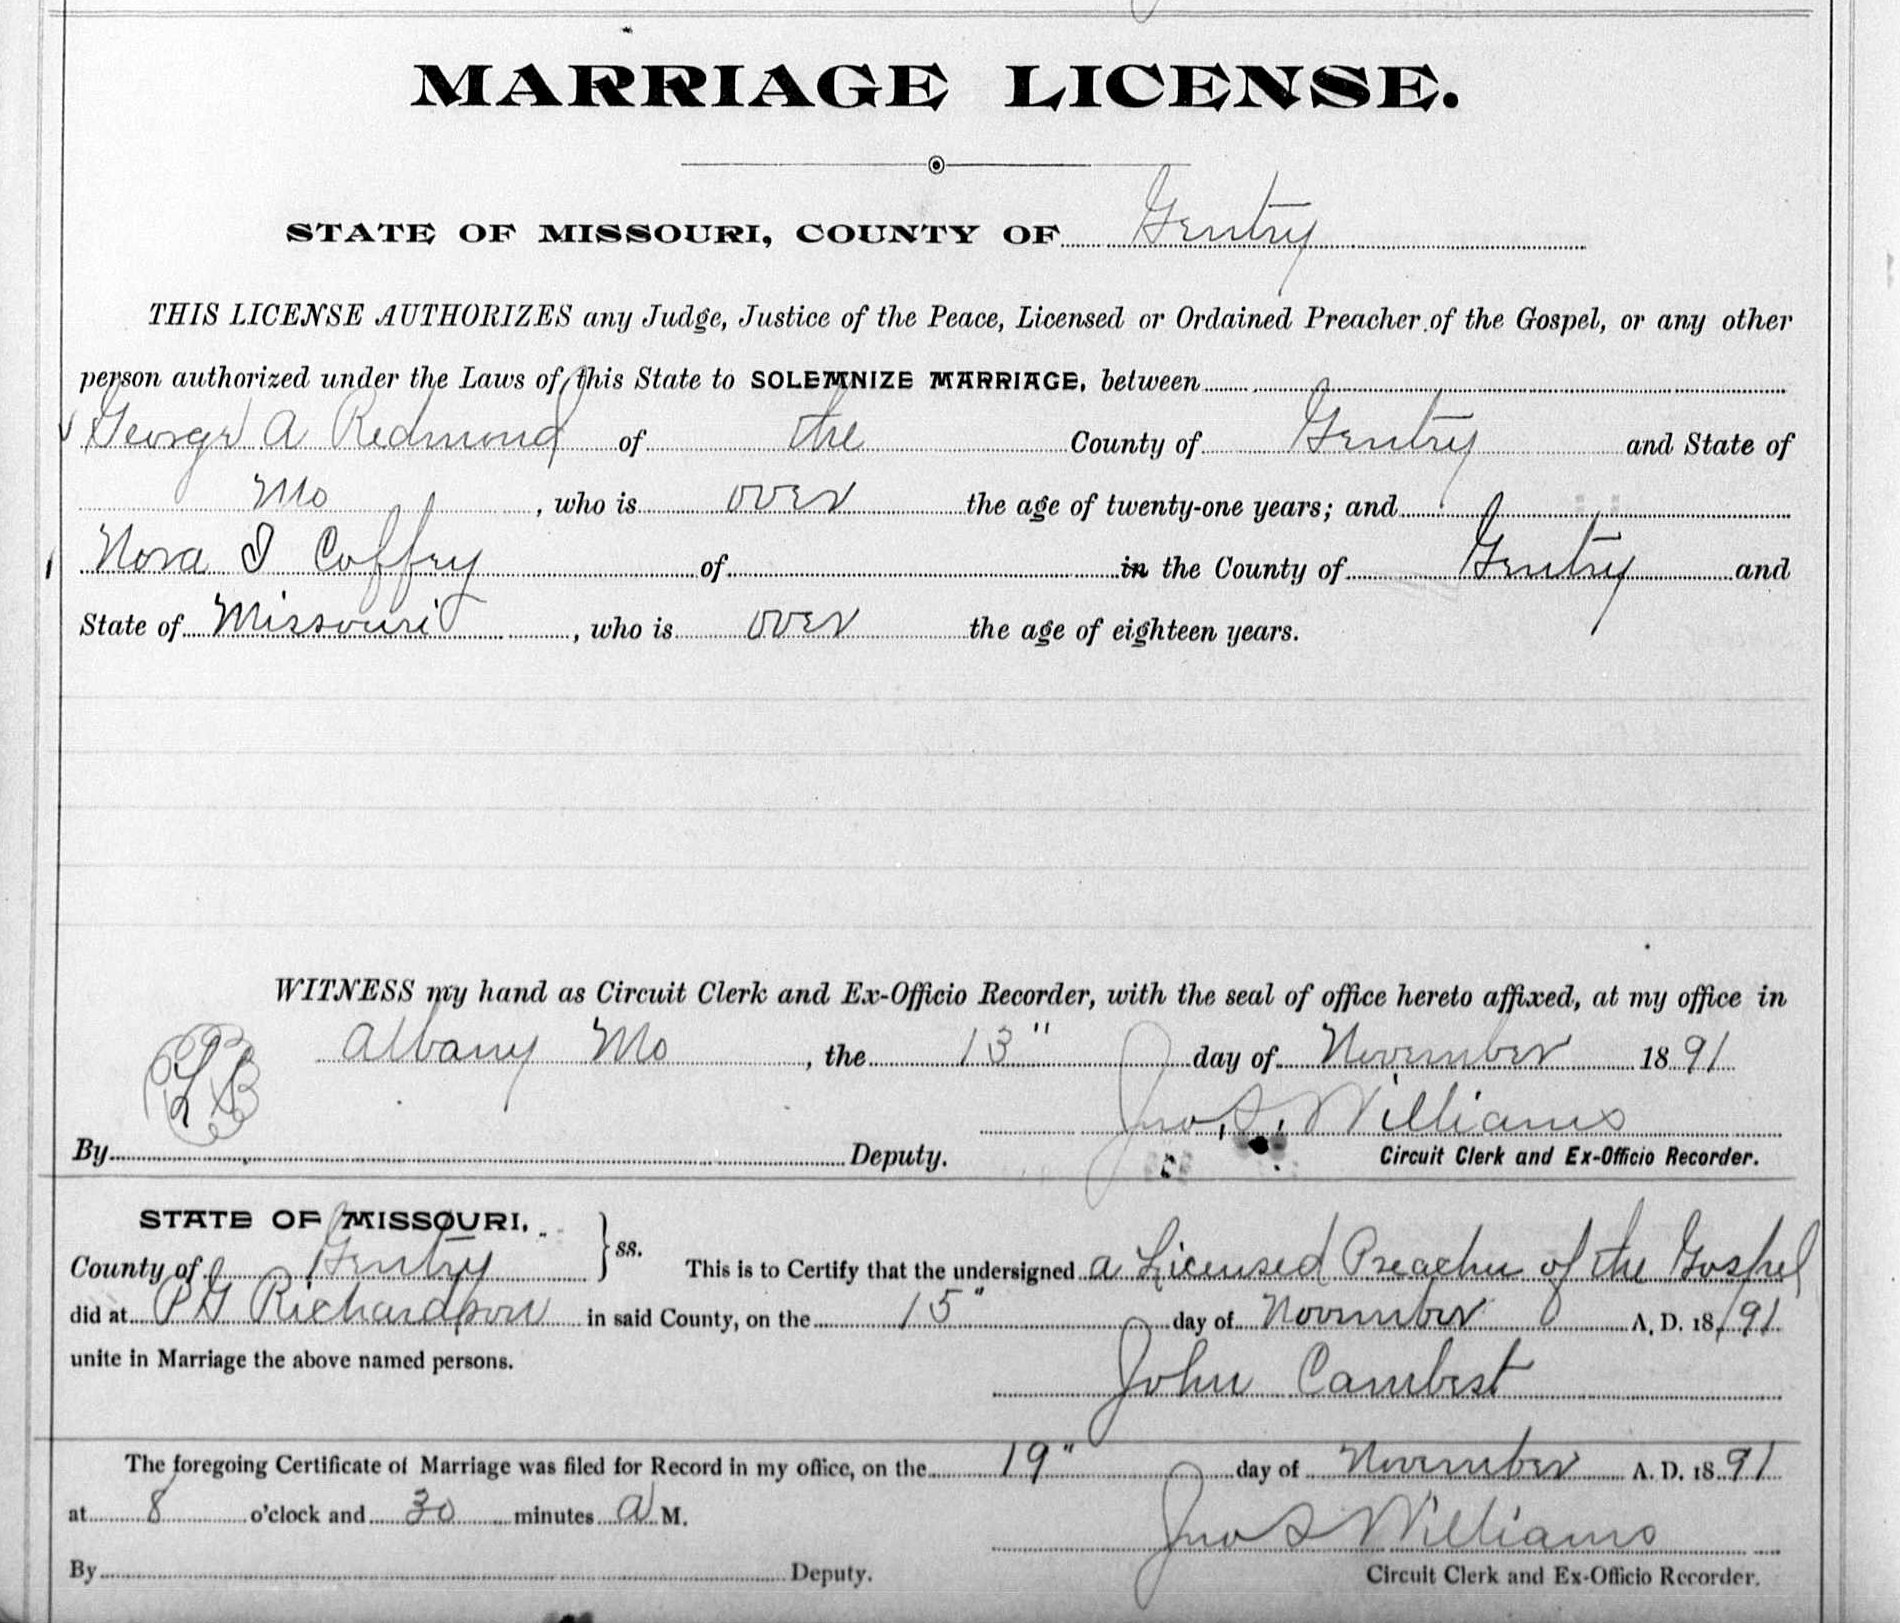 MARRIAGE LICENSE.
STATE OF MISSOURI, COUNTY OF Gentry
THIS LICENSE AUTHORIZES any Judge, Justice of the Peace, Licensed or Ordained Preacher of the Gospel, or any other
person authorized under the Laws of this State to SOLEMNIZE MARRIAGE, between
George A Redmond of the County of Gentry and State of
Mo, who is over the age of twenty-one years; and
Nora I Coffey of in the County of Gentry and
State of Missouri, who is over the age of eighteen years.
WITNESS my hand as Circuit Clerk and Ex-Officio Recorder, with the seal of office hereto affixed, at my office in
Albany Mo, the 13" day of November 1891
LS
Jno. S. Williams
By Deputy. Circuit Clerk and Ex-Officio Recorder.
STATE OF MISSOURI,
County of Gentry } ss. This is to Certify that the undersigned a Licensed Preacher of the Gospel
did at P G Richardson in said County, on the 15" day of November A. D. 1891
unite in Marriage the above named persons.
John Cambest
The foregoing Certificate of Marriage was filed for Record in my office, on the 19" day of November A. D. 1891
at 8 o'clock and 30 minutes A M.
Jno S Williams
By Deputy. Circuit Clerk and Ex-Officio Recorder.